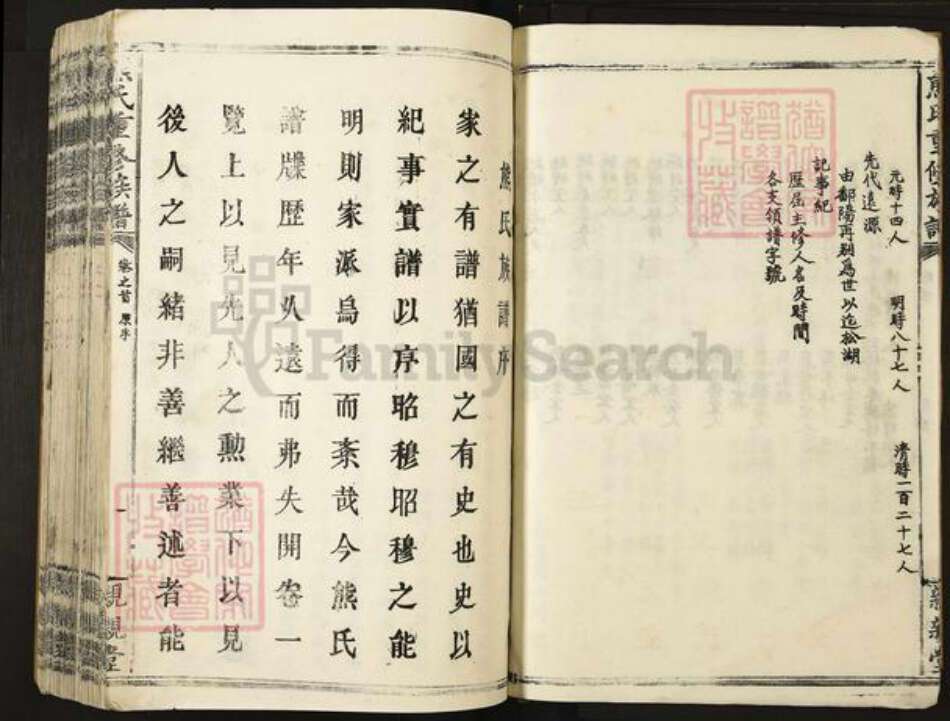 熊氏重修族譜
元時十四人 明時八十七人 清時一百二十七人
先代遠源
由鄱陽再刱爲世以迄松湖
記事紀
歷屆主修人名及時間
各支領譜字號
親親堂
熊氏族譜序
家之有譜猶國之有史也史以
紀事實譜以序昭穆昭穆之能
明則家派烏得而紊哉今熊氏
譜牒歷年久遠而弗失開卷一
覽上以見先人之勲業下以見
後人之嗣緒非善繼善述者能
熊氏重修族譜 卷之首 原序 一 親親堂
FamilySearch